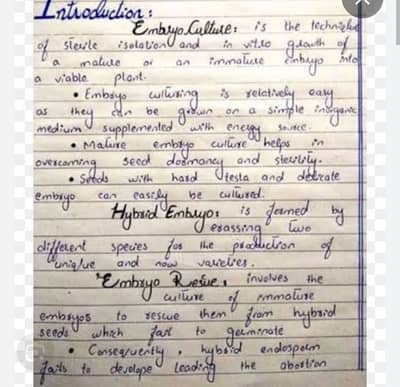 Introduction :
Embryo Culture : is the technique
of sterile isolation and in vitro growth of
a mature or an immature embryo into
a viable plant.
• Embryo culturing is relatively easy
as they can be grown on a simple inorganic
medium supplemented with energy source.
• Mature embryo culture helps in
overcoming seed dormancy and sterility.
• Seeds with hard testa and delicate
embryo can easily be cultured.
Hybrid Embryo : is formed by
crossing two
different species for the production of
unique and new varieties.
Embryo Rescue : involves the
culture of immature
embryos to rescue them from hybrid
seeds which fail to germinate
• Consequently , hybrid endosperm
fails to develope leading the abortion